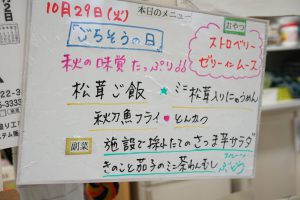 10月29日(火)
本日のメニュー
「ごちそうの日」
おやつ
ストロベリー
ゼリーinムース
秋の味覚たっぷり
松茸ご飯 ★ ミニ松茸入りにゅうめん
秋刀魚フライ ♥ とんかつ
副菜
施設で採れたてのさつま芋サラダ
きのこと茄子のミニ茶わんむし
フルーツ
ぶどう